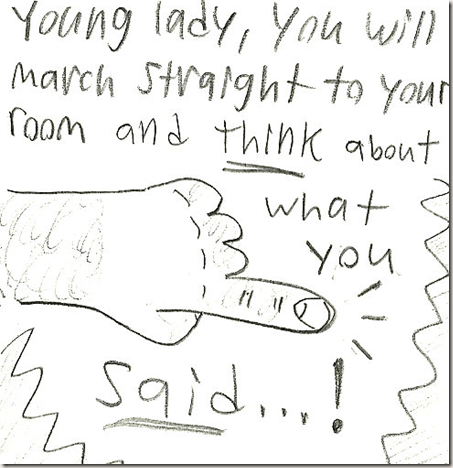 Young lady, you will
march straight to your
room and think about
what
you
said...!